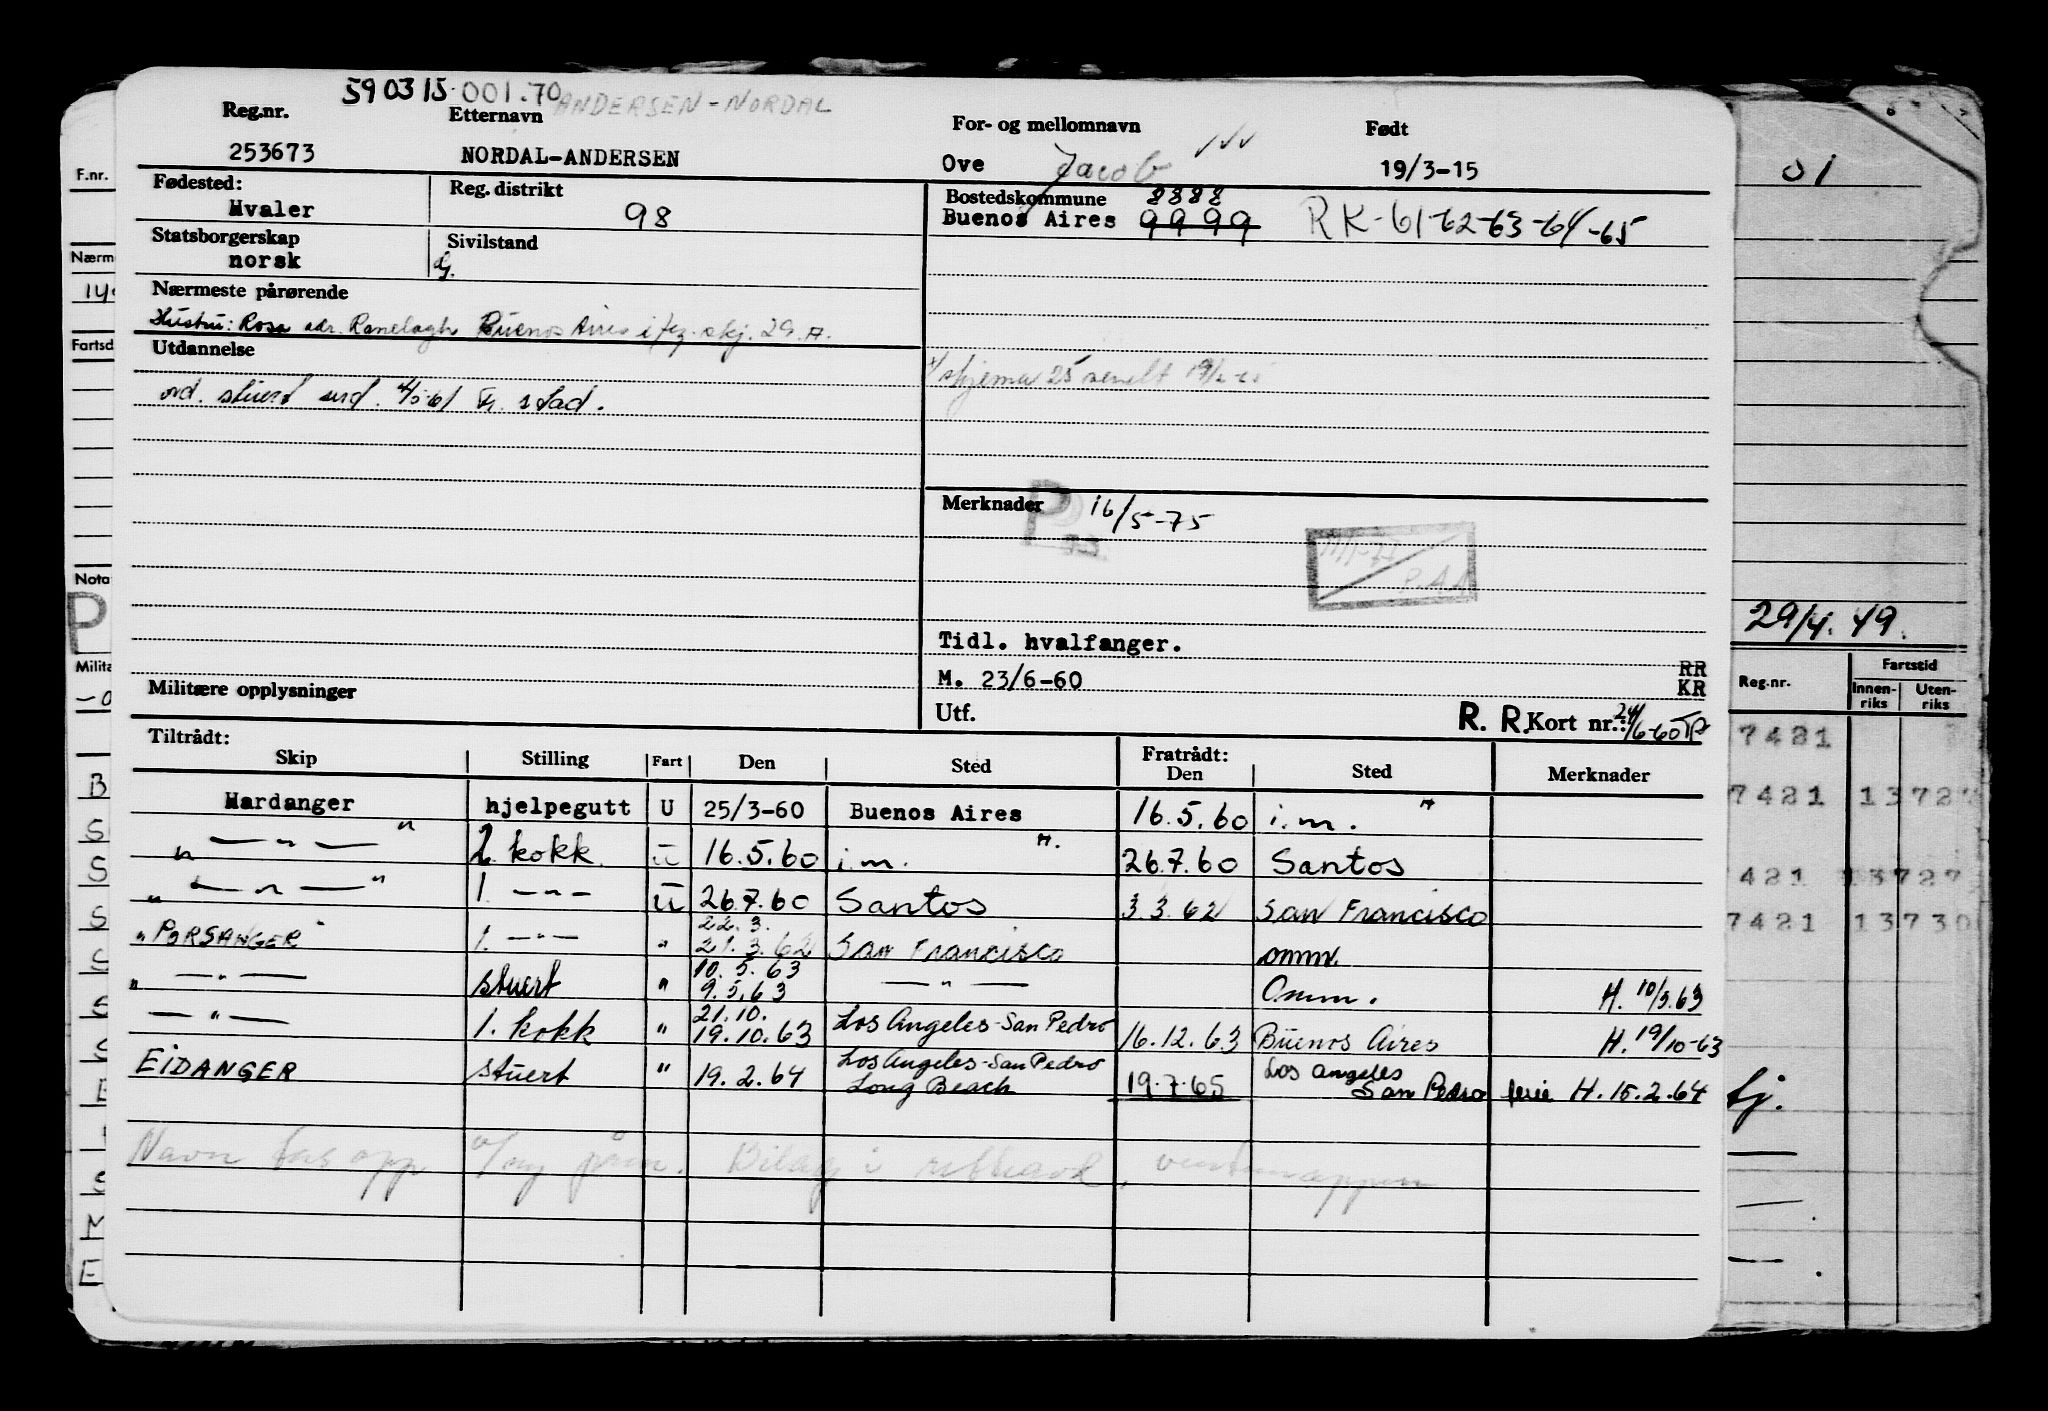 590315 001.70 ANDERSEN-NORDAL
Reg.nr. Etternavn For- og mellomnavn Født
253673 NORDAL-ANDERSEN Ove Jacob 19/3-15
Fødested: Reg. distrikt Bostedskommune 8888
Hvaler 98 Buenos Aires 9999 RK-61-62-63-64-65
Statsborgerskap Sivilstand
norsk G.
Nærmeste pårørende
Hustru: Rosa adr. Ranelagh Buenos Aires i flg. skj. 29.A.
Utdannelse
skjema 25 sendt
ord. stuert und. 4/5-61 Fr. stad.
Merknader 16/5-75
P
P.A.A
Tidl. hvalfanger.
M. 23/6-60
RR
KR
Militære opplysninger
Utf. R. R. Kort nr.: 24/6-60
Tiltrådt: Fratrådt:
Skip Stilling Fart Den Sted Den Sted Merknader
Hardanger hjelpegutt U 25/3-60 Buenos Aires 16.5.60 i.m. "
" — " — " 2. kokk U 16.5.60 i.m. " 26.7.60 Santos
" — " — " 1. — " — U 26.7.60 Santos 3.3.62 San Francisco
22.3.
" PORSANGER " 1. — " — " 21.3.62 San Francisco omm.
10.5.63
" — " — stuert " 9.5.63 — " — Omm. H. 10/5.63
21.10.
— " — 1. kokk " 19.10.63 Los Angeles-San Pedro 16.12.63 Buenos Aires H. 19/10-63
EIDANGER stuert " 19.2.64 Los Angeles-San Pedro Long Beach 19.7.65 Los Angeles San Pedro ferie H. 15.2.64
Navn
F.nr.
Nærm
Fartsd
Nota
P
Milita
B
S
S
S
S
S
S
E
M
E
01
29/4.49.
Reg.nr. Fartstid
Innen-riks Uten-riks
7421
7421 1372
421 1372
7421 13730